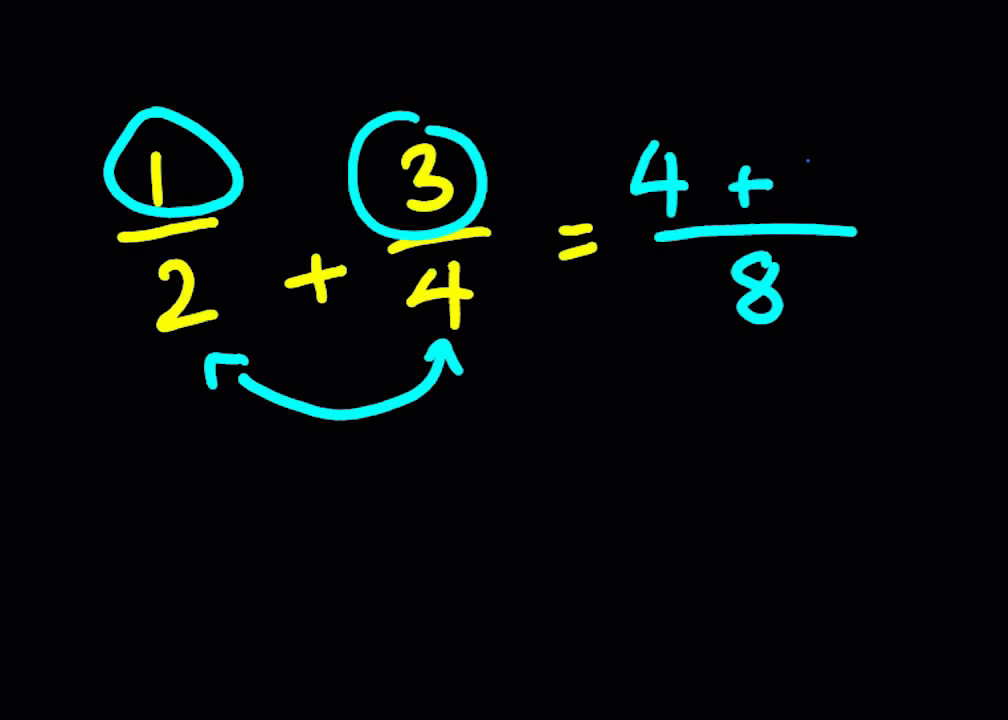 1/2 + 3/4 = 4 + /8